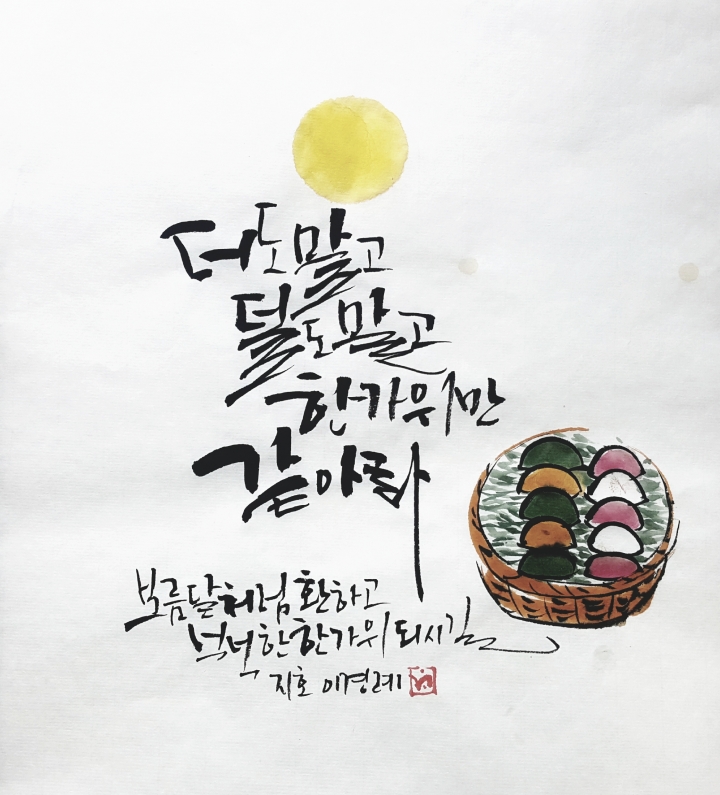 더도 말고
덜도 말고
한가위만
같아라
보름달처럼 환하고
넉넉한 한가위 되시길
지호 이경례